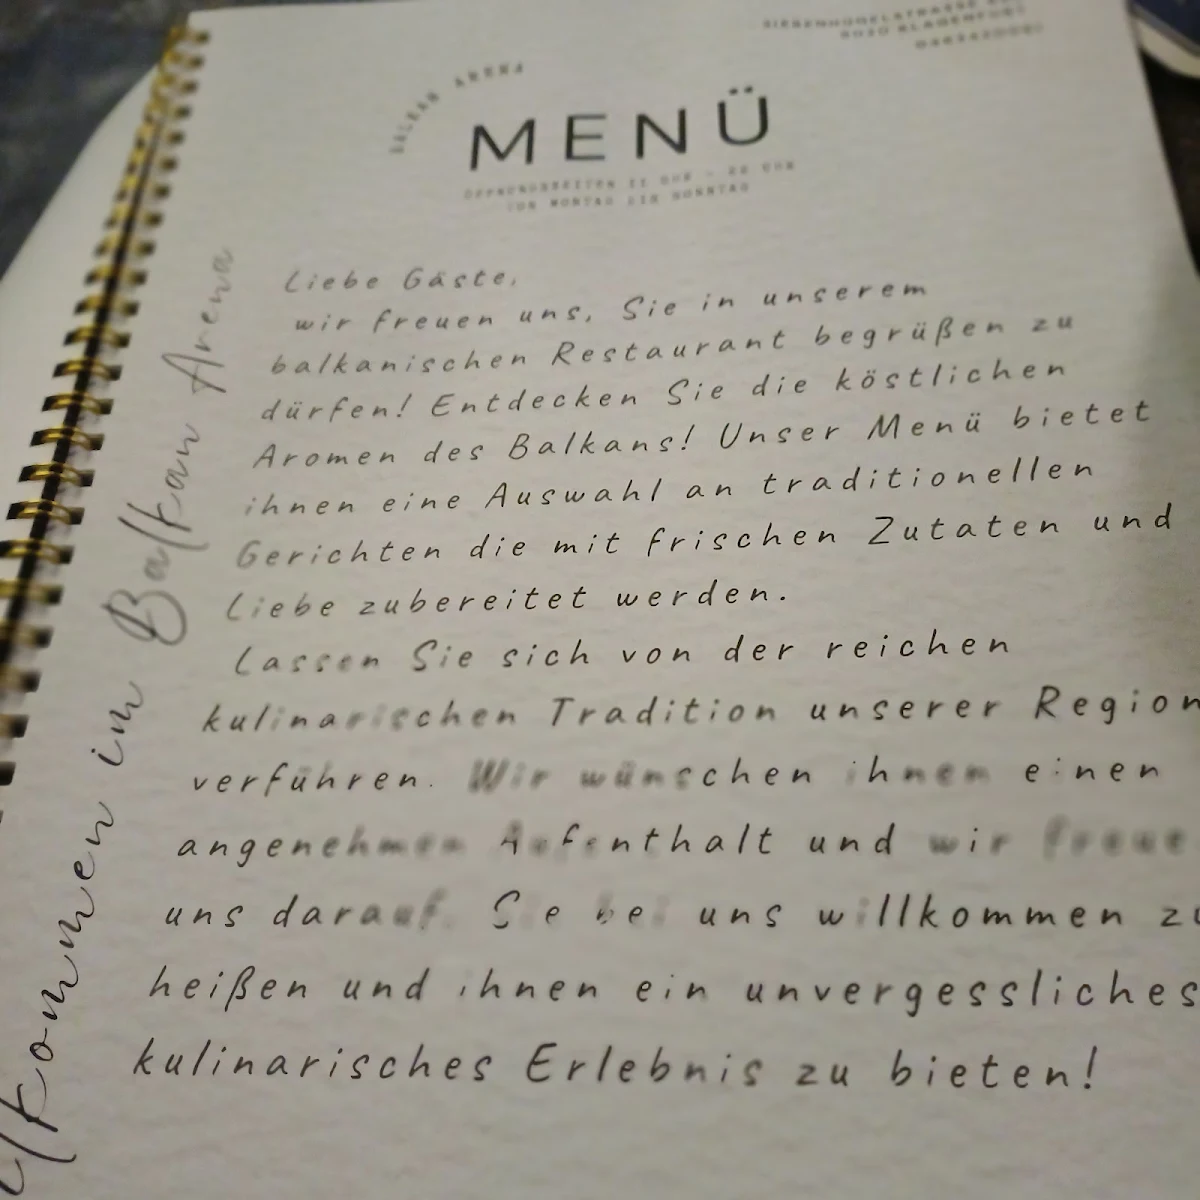 BALKAN ARENA
MENÜ
ÖFFNUNGSZEITEN 11 UHR - 22 UHR
VON MONTAG BIS SONNTAG
Liebe Gäste,
wir freuen uns, Sie in unserem
balkanischen Restaurant begrüßen zu
dürfen! Entdecken Sie die köstlichen
Aromen des Balkans! Unser Menü bietet
ihnen eine Auswahl an traditionellen
Gerichten die mit frischen Zutaten und
Liebe zubereitet werden.
Lassen Sie sich von der reichen
kulinarischen Tradition unserer Region
verführen. Wir wünschen ihnen einen
angenehmen Aufenthalt und wir freue
uns darauf. Sie bei uns willkommen zu
heißen und ihnen ein unvergessliches
kulinarisches Erlebnis zu bieten!
lkommen im Balkan Arena